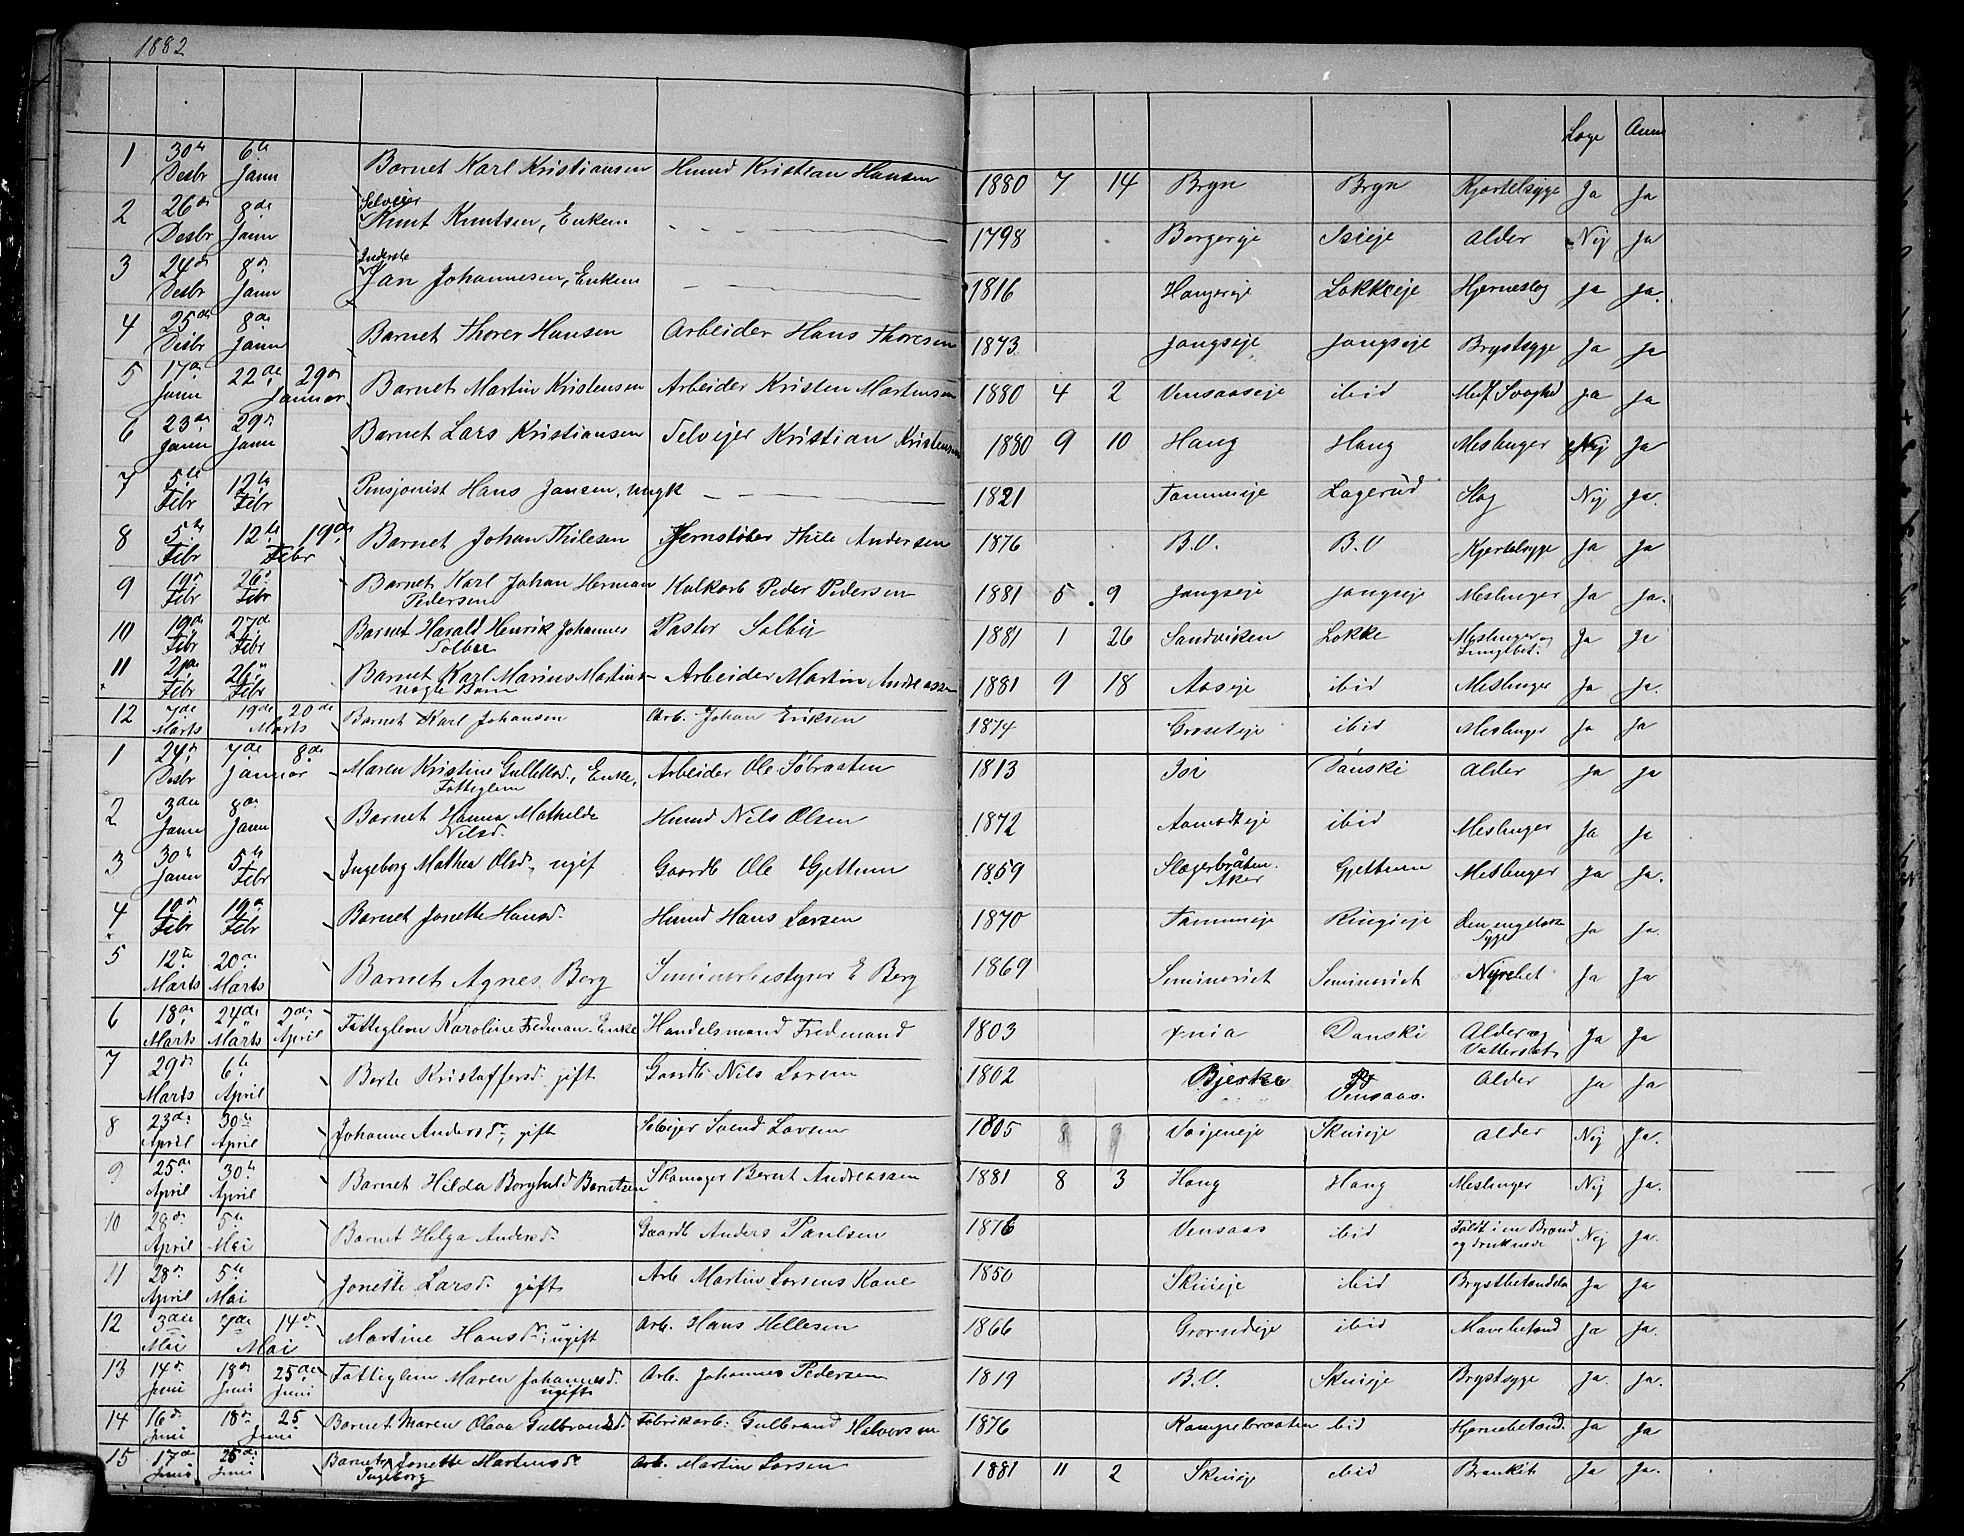 1882
Læge Anm
1 30te Desbr 6te Janu Barnet Karl Kristiansen Husmd Kristian Hansen 1880 7 14 Bryn Bryn Kjertelsyge Ja Ja
2 26de Desbr 8de Janu Selveier Knut Knutsen, Enkem 1798 Borgereje Isieje Alder Nej Ja
3 24de Desbr 8de Janu Inderste Jan Johannesen, Enkem 1816 Haugereje Løkkeeje Hjerneslag Ja Ja.
4 25de Desbr 8de Janu Barnet Thorer Hansen Arbeider Hans Thoresen 1873 Jongseje Jongseje Brystsyge Ja Ja
5 17de Janu 22de 29de Januar Barnet Martin Kristensen Arbeider Kristen Martensen 1880 4 2 Vensaaseje ibid Medf Svaghed Ja Ja
6 23de Janu 29de Janu Barnet Lars Kristiansen Selvejer Kristian Kristensen 1880 9 10 Haug Haug Meslinger Nej Ja
7 5te Febr 12te Febr Pensjonist Hans Jansen, ungk 1821 Tanumeje Lagerud Slag Nej Ja.
8 5te Febr 12te 19de Febr Barnet Johan Thilesen Jernstøber Thile Andersen 1876 B.V. B.V Kjertelsyge Ja Ja
9 19de Febr 26de Febr Barnet Karl Johan Herman Pedersen Kalkarb Peder Pedersen 1881 5 9 Jongseje Jongseje Meslinger Ja Ja.
10 19de Febr 27de Febr Barnet Harald Henrik Johannes Solbee Pastor Solbu 1881 1 26 Sandviken Løkke Meslinger og Lungebet. Ja Ja
11 21de Febr 26de Febr Barnet Karl Marius Martins- uægte Barn Arbeider Martin Andreassen 1881 9 18 Aaseje ibid Meslinger Ja Ja.
12 7de Marts 19de 20de Marts Barnet Karl Johansen Arb. Johan Eriksen 1874 Groseteje ibid Meslinger Ja Ja
1 24de Desbr 7de 8de Januar Maren Kristine Gulleksd., Enke, Fattiglem Arbeider Ole Søbraaten 1813 Isi Danski Alder Ja Ja
2 3die Janu 8de Janu Barnet Hanna Mathilde Nilsd. Husmd Nils Olsen 1872 Aamodteje ibid Meslinger Ja Ja
3 30te Janu 5te Febr Ingeborg Mathea Olsd., ugif Gaardb Ole Gjettum 1859 Slagerbråten. Aker Gjettum Meslinger Ja Ja.
4 10de Febr 19de Febr Barnet Jonette Hansd. Husmd Hans Larsen 1870 Tanumeje Ringieje Den engelske Syge Ja Ja.
5 12te Marts 20de Marts Barnet Agnes Berg Seminarbestyrer E Berg 1869 Seminariet Seminariet Nyrebet Ja Ja
6 18de Marts 24de Marts 2den April Fattiglem Karoline Fredman. Enke Handelsmand Fredmand 1803 Danski Alder og Vattersot Ja Ja
7 29de Marts 6te April Berte Kristoffersd. gift Gaardb Nils Larsen 1802 Bjerke Vensaas. Alder Ja Ja
8 23de April 30te April Johanne Andersd., gift Selvejer Svend Larsen 1805 8 9 Vøsjeneje Skuieje Alder Nej Ja.
9 25de April 30te April Barnet Hilda Borghild Berntsen Skomager Bernt Andreassen 1881 8 3 Haug Haug Meslinger Nej Ja.
10 28de April 5te Mai Barnet Helga Andersd. Gaardb Anders Paulsen 1876 Vensaas ibid Faldt i en Brønd og druknede Nej Ja.
11 28de April 5te Mai Jonette Larsd. gift Arb Martin Larsens Kone 1850 Skuieje ibid Brystbetændelse Ja Ja
12 3die Mai 7de 14de Mai Martine Hansd., ugift Arb. Hans Hellesen 1866 Grorudeje ibid Mavebetænd Ja Ja.
13 14de Juni 18de Juni 25de Juni Fattiglem Maren Johannesd. ugift Arb. Johannes Pedersen 1819 B.V. Skuieje Brystsyge Ja. Ja.
14 16de Juni 18de 25 Juni Barnet Maren Olava Gulbrandsd. Fabrikarb. Gulbrand Halvorsen 1876 Kampebraaten ibid Hjernebetænd. Ja Ja
15 17de Juni 25de Juni Barnet Jonette Martinsd. Ingeborg Arb. Martin Larsen 1881 11 2 Skuieje ibid Bronkit Ja Ja.